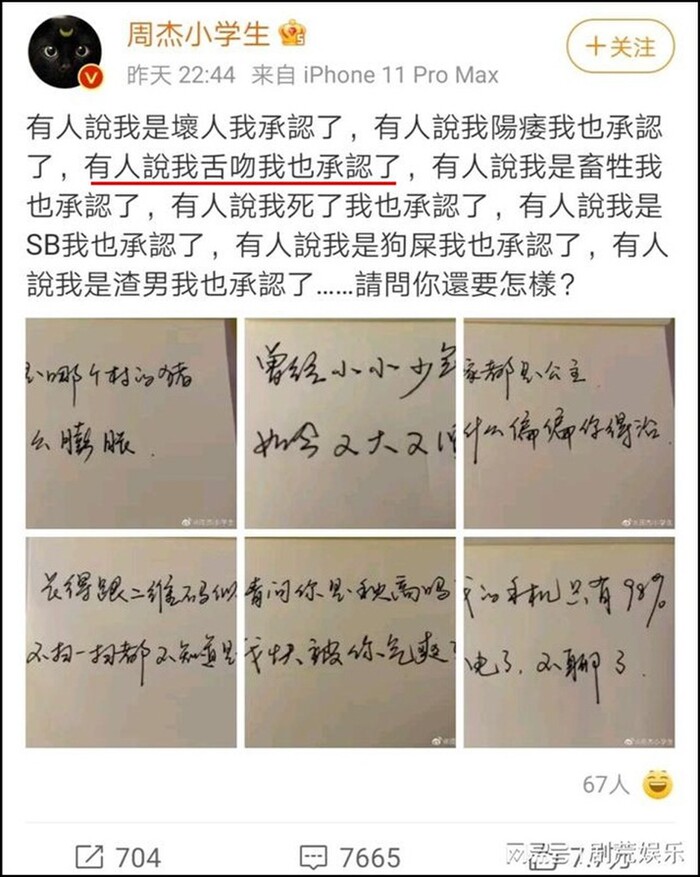 周杰小学生
昨天 22:44 来自 iPhone 11 Pro Max
+关注
有人說我是壞人我承認了，有人說我陽痿我也承認
了，有人說我舌吻我也承認了，有人說我是畜牲我
也承認了，有人說我死了我也承認了，有人說我是
SB我也承認了，有人說我是狗屎我也承認了，有人
說我是渣男我也承認了……請問你還要怎樣？
是哪个村的猪
么膨胀.
曾经小小少年
如今又大又
家都是公主
什么偏偏你得治.
长得跟二维码似
不扫一扫都不知道是
请问你是秋高吗
我快被你气爽了
我的手机只有98%
电了，不聊了.
@周杰小学生
67人
704
7665
7.7万
剧荒娱乐